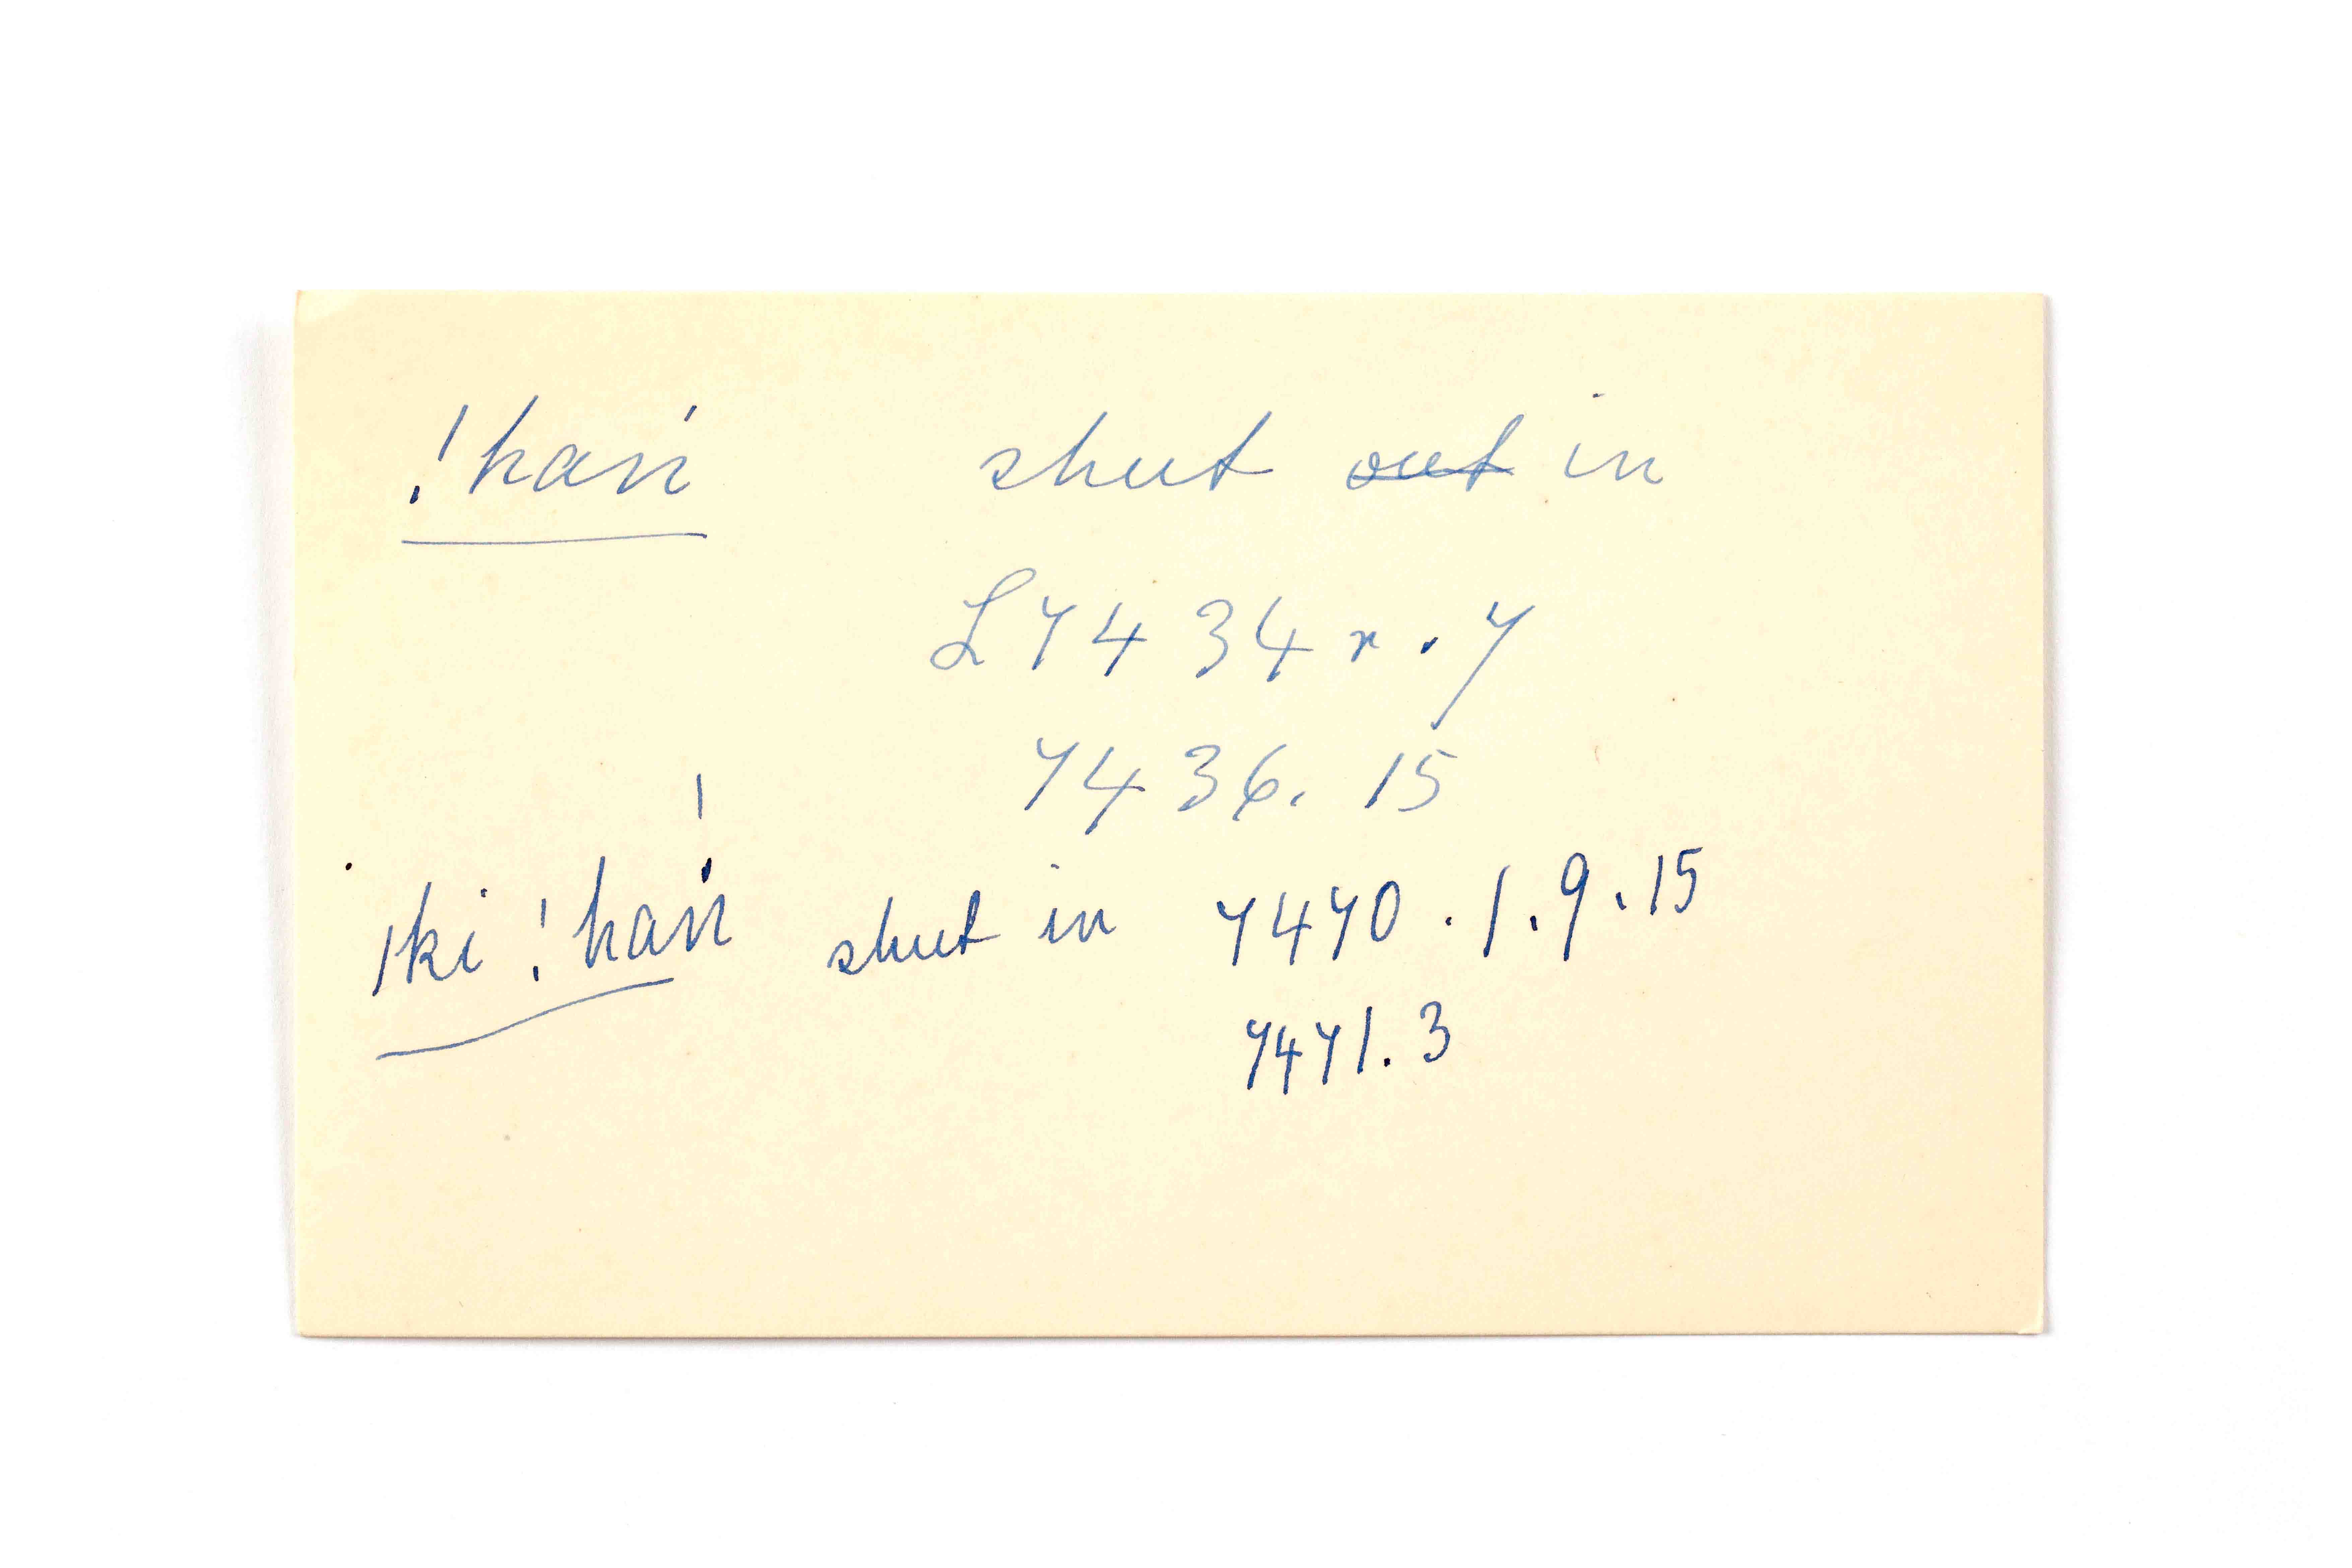 !haṅ shut out in
L7434r.7
7436. 15
ǀki !haṅ shut in 7470 . 1 . 9 . 15
7471. 3